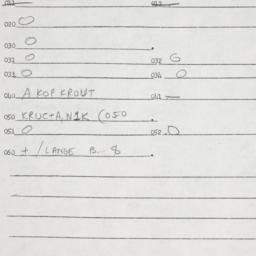 020 O
030 O
031 O 032 O
033 O 034 O
040 A KOP KROUT 041 —
050 KRUC+A, N1K (050
051 O 052 O
060 + / LANGE B - 8